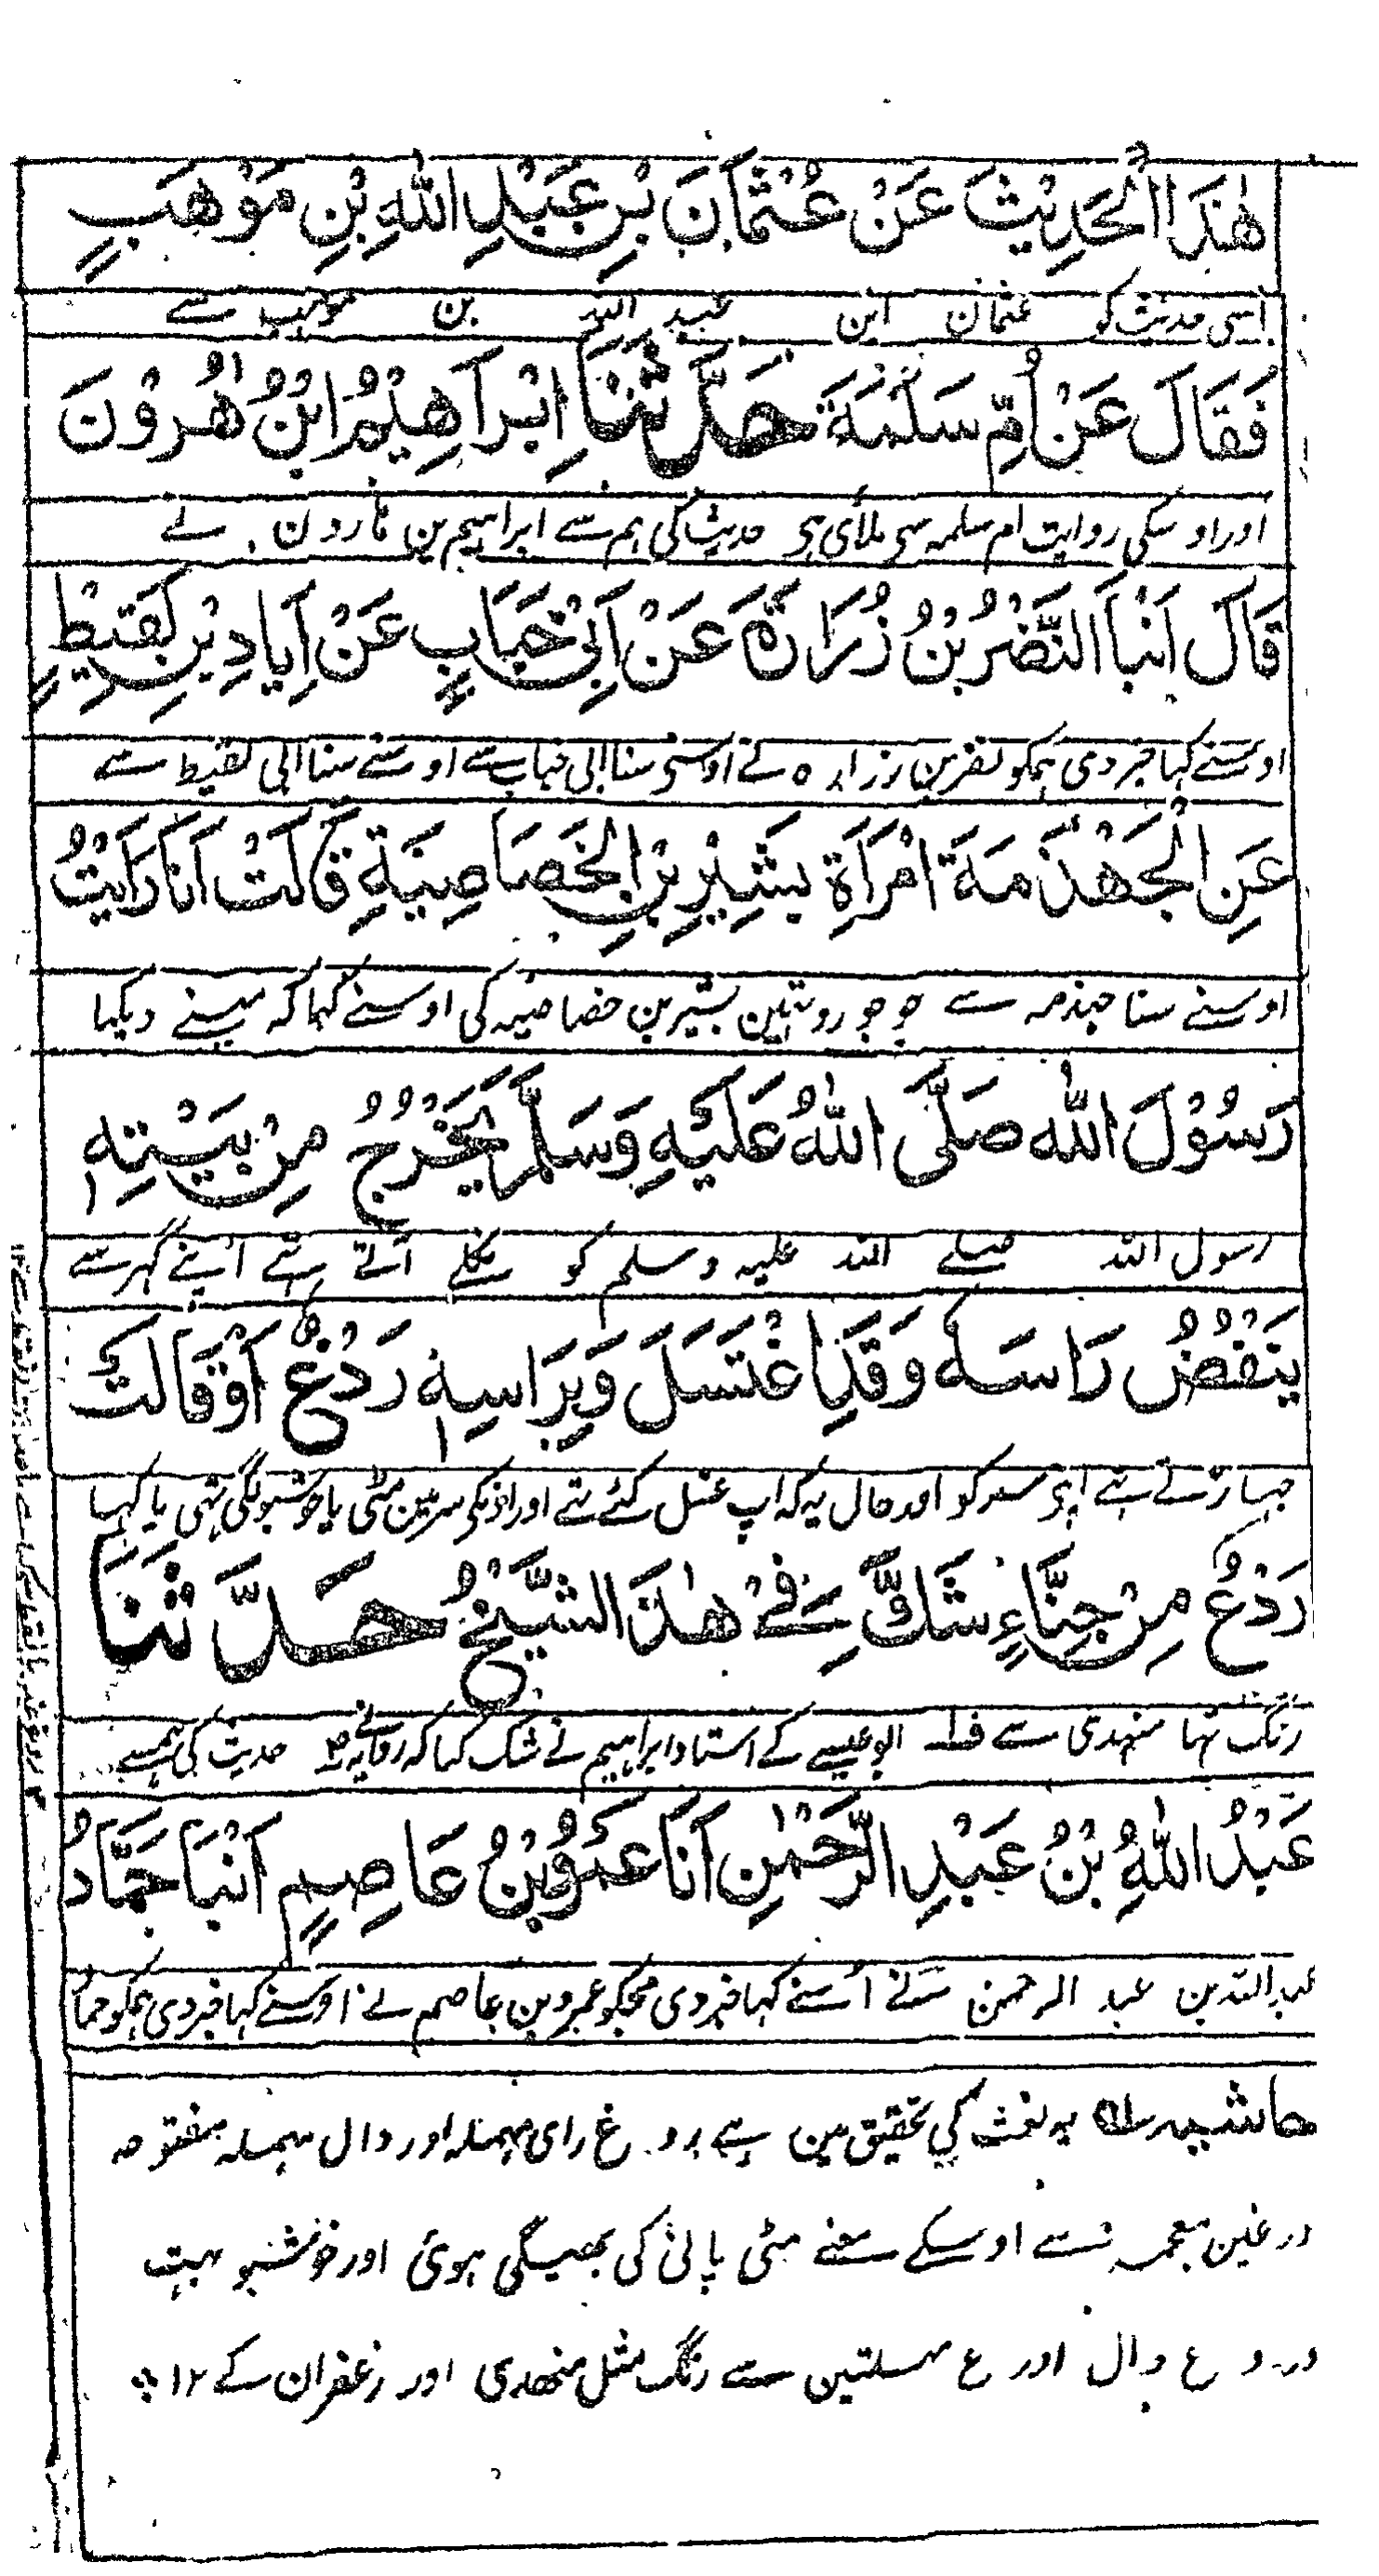 هٰذَا الْحَدِيْثَ عَنْ عُثْمَانَ بْنِ عَبْدِ اللّٰهِ بْنِ مَوْهَبٍ
اسی حدیث کو عثمان ابن عبد اللہ بن موہب سے
فَقَالَ عَنْ اُمِّ سَلَمَةَ حَدَّثَنَا اِبْرَاهِيْمُ ابْنُ هٰرُوْنَ
اور اوسکی روایت ام سلمہ سی ملائی ہی حدیث کی ہم سے ابراہیم بن ہارون نے
قَالَ اَنْبَاَ النَّضْرُ بْنُ زُرَارَةَ عَنْ اَبِيْ خَبَابٍ عَنْ اِيَادِ بْنِ لَقِيْطٍ
اوسنے کہا خبر دی ہمکو نضر بن زرارہ نے اوسنی سنا ابی خباب سے اوسنے سنا ابی لقیط سے
عَنِ الْجَهْذَمَةَ امْرَاَةِ بَشِيْرِ بْنِ الْخَصَاصِيَةِ قَالَتْ اَنَا رَاَيْتُ
اوسنے سنا جہذمہ سے جو جورو تہین بشیر بن خصاصیہ کی اوسنے کہا کہ مینے دیکہا
رَسُوْلَ اللّٰه صَلَّى اللّٰهُ عَلَيْهِ وَسَلَّمَ يَخْرُجُ مِنْ بَيْتِهٖ
رسول اللہ صلے اللہ علیہ وسلم کو نکلے آتے تہے اپنے گہر سے
يَنْفُضُ رَاسَهٗ وَقَدِ اغْتَسَلَ وَبِرَاسِهٖ رَدْغٌ اَوْ قَالَتْ
جہاڑتے تہے اپنی سر کو اور حال یہ کہ اپ غسل کئے تہے اور اونکی سر مین مٹی یا خوشبو لگی تہی یا کہا
رَدْعٌ مِنْ حِنَّاءٍ شَكَّ فِيْ هٰذَا الشَّيْخُ حَدَّثَنَا
رنگ تہا منہدی سے ف ابو عیسے کے استاد ابراہیم نے شک کیا کہ حدیث کی ہمسے
عَبْدُ اللّٰهِ بْنُ عَبْدِ الرَّحْمٰنِ اَنَا عَمْرُو بْنُ عَاصِمٍ اَنْبَاَ حَمَّادُ
عبد اللہ بن عبد الرحمن نے اُسنے کہا خبر دی مجکو عمرو بن عاصم نے اوسنے کہا خبر دی ہمکو حماد
حاشیہ یہ لغت کی تحقیق مین ہے ردغ رای مہملہ اور دال مہملہ مفتوحہ
در غین معجمہ سے اوسکے معنے مٹی پانی کی بھیگی ہوئی اور خوشبو بہت
در دع دال اور ع مہملتین سے رنگ مثل منھدی اور زعفران کے ١٢